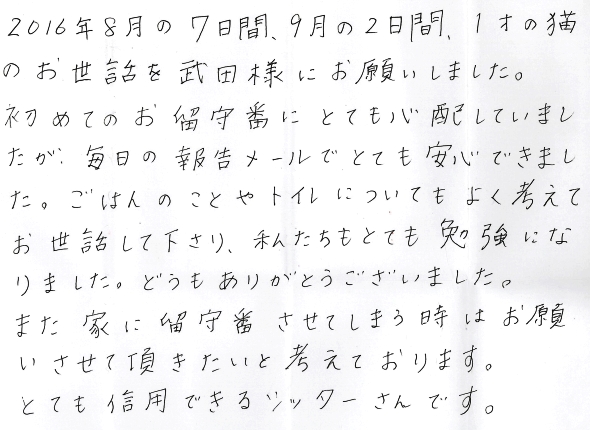 2016年8月の7日間、9月の2日間、1才の猫
のお世話を武田様にお願いしました。
初めてのお留守番にとても心配していまし
たが、毎日の報告メールでとても安心できまし
た。ごはんのことやトイレについてもよく考えて
お世話して下さり、私たちもとても勉強にな
りました。どうもありがとうございました。
また家に留守番させてしまう時はお願
いさせて頂きたいと考えております。
とても信用できるシッターさんです。